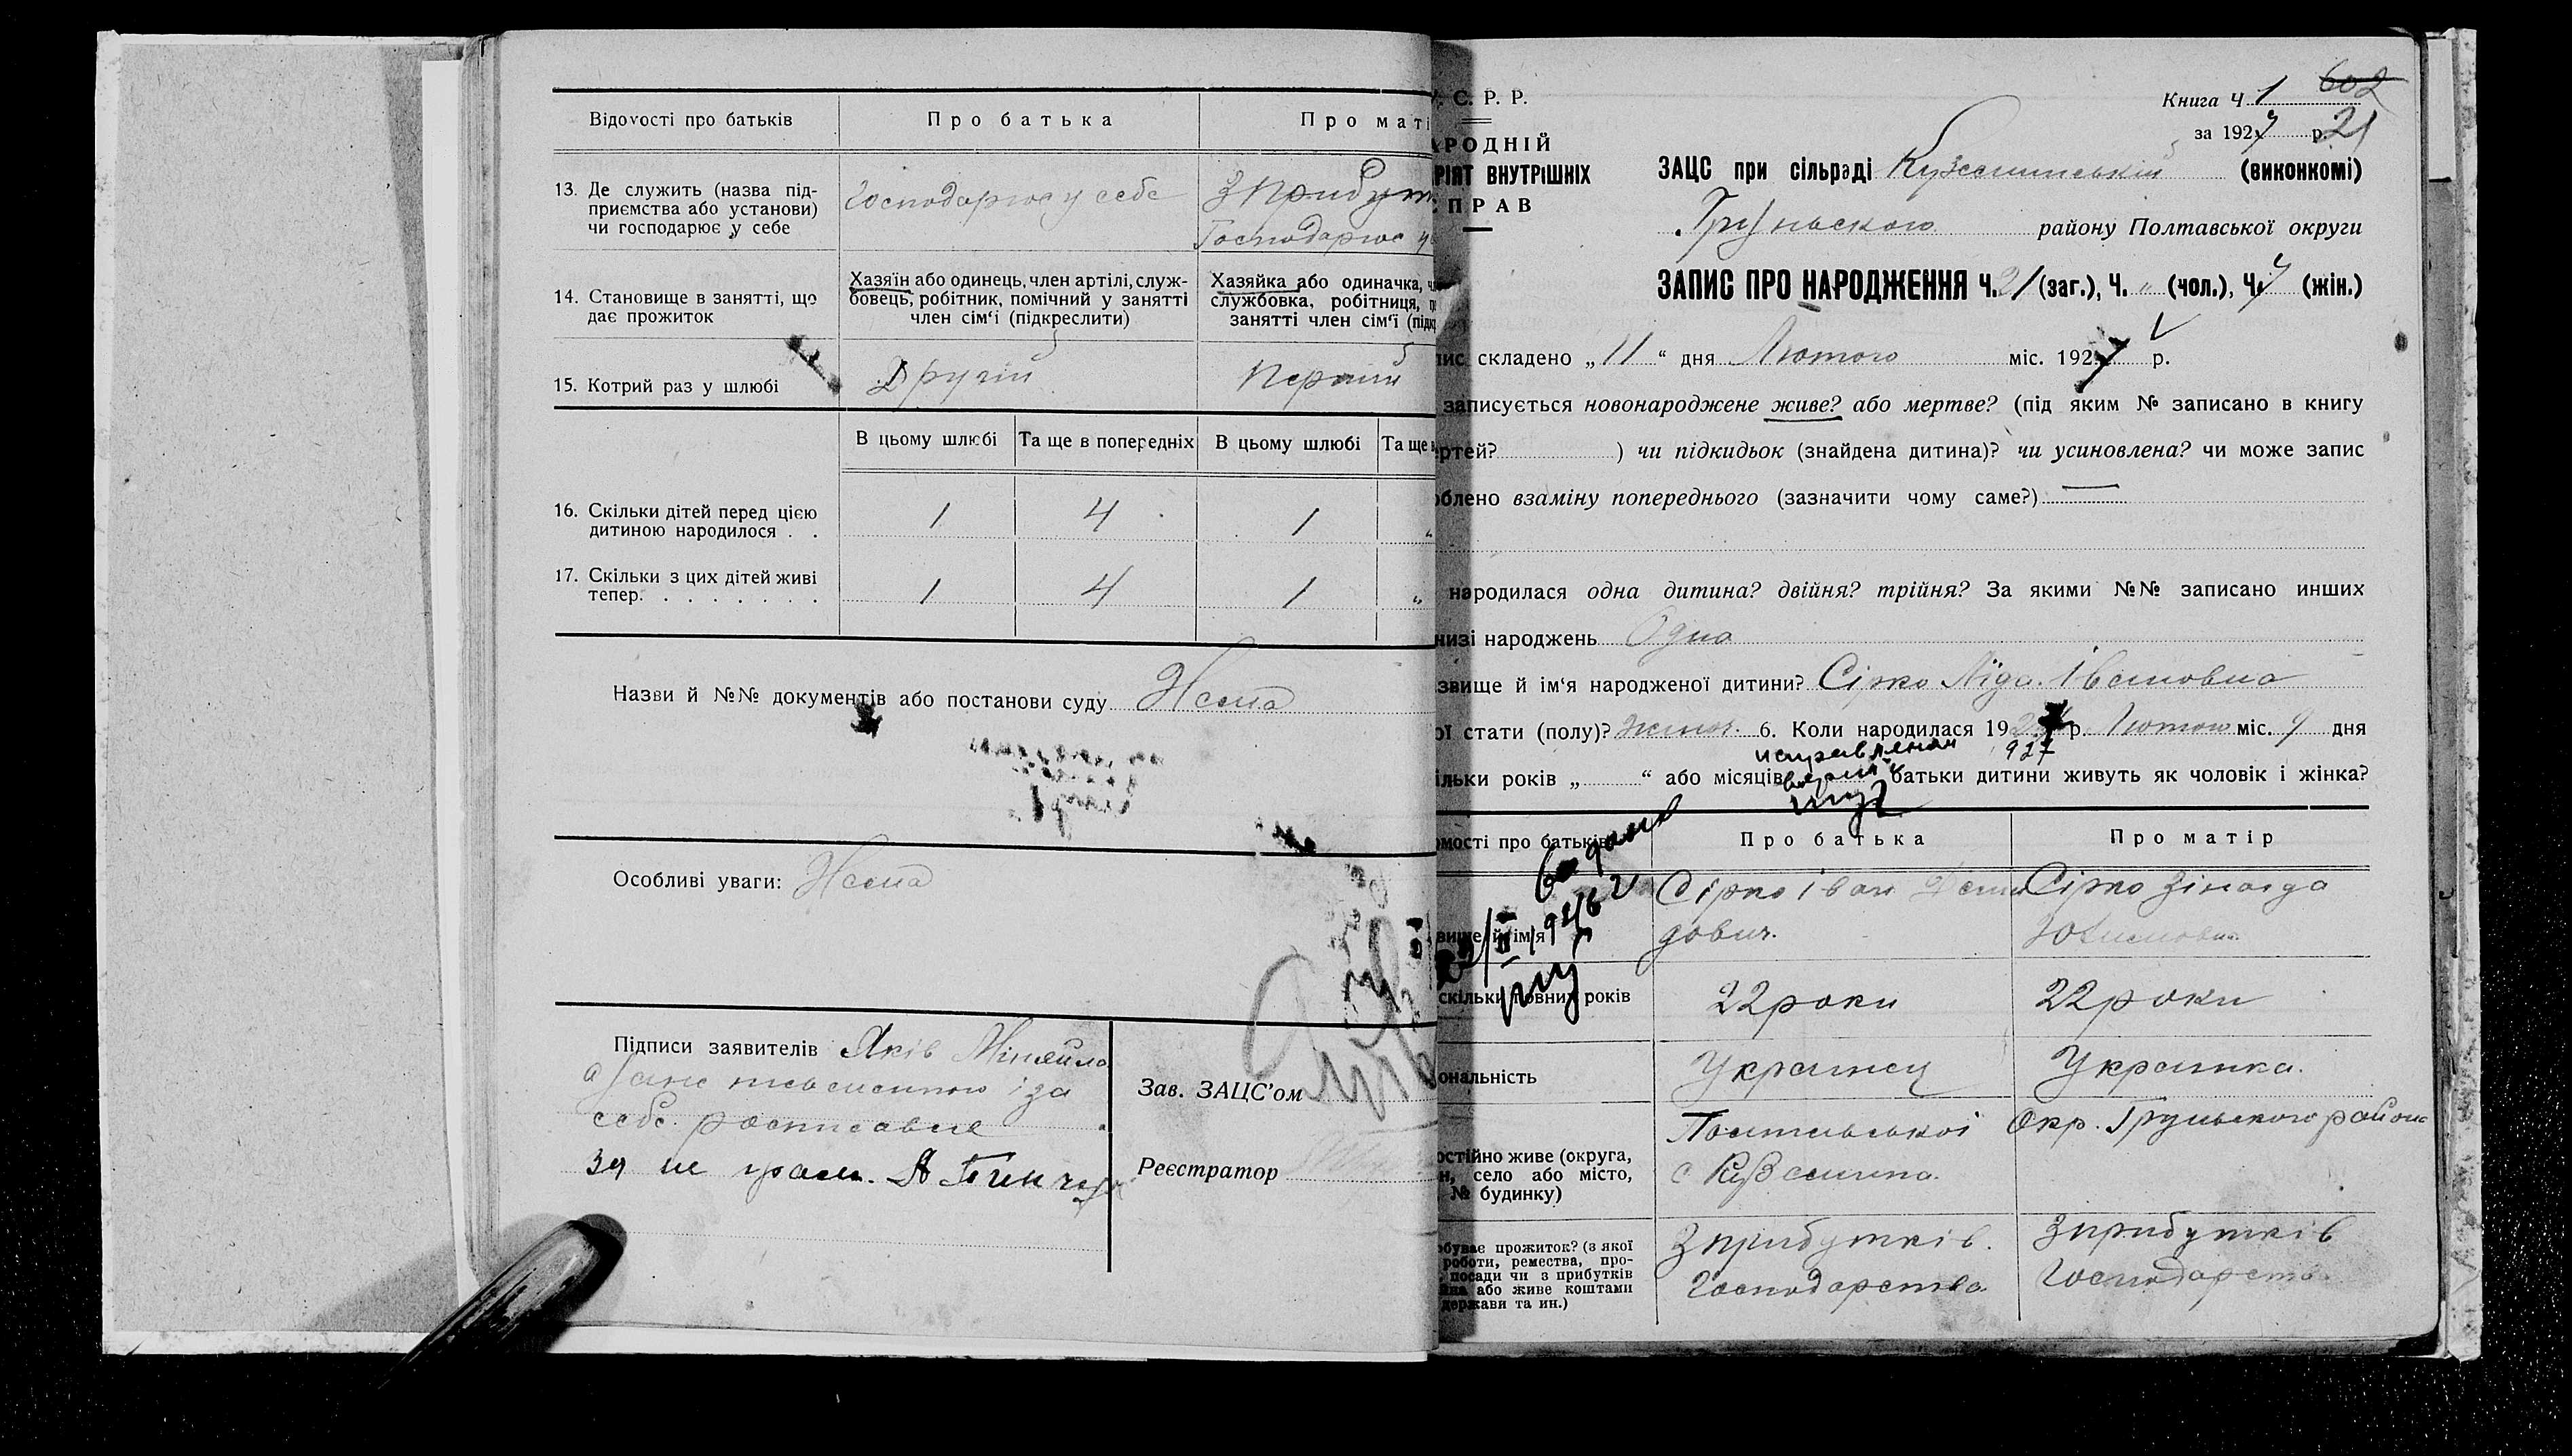 Відомості про батьків
Про батька
Про маті
13. Де служить (назва під-
приємства або установи)
чи господарює у себе
Господарює у себе
З прибут
Господарює у
14. Становище в занятті, що
дає прожиток
Хазяїн або одинець, член артілі, служ-
бовець, робітник, помічний у занятті
член сім'ї (підкреслити)
Хазяйка або одиначка, ч
службовка, робітниця, п
занятті член сім'ї (підк
15. Котрий раз у шлюбі
Другий
Перший
В цьому шлюбі
Та ще в попередніх
В цьому шлюбі
Та ще в
16. Скільки дітей перед цією
дитиною народилося . .
1 4 1 „
17. Скільки з цих дітей живі
тепер. . . . . . . .
1 4 1 „
Назви й №№ документів або постанови суду Нема
Особливі уваги: Нема
Підписи заявителів Яків Міняйло
а жінка неписьменна і за
себе росписався
за не грам.
Зав. ЗАЦС'ом
Реєстратор
602
Книга Ч 1
за 1927 р. 21
. С. Р. Р.
АРОДНІЙ
РІЯТ ВНУТРІШНІХ
СПРАВ
ЗАЦС при сільраді (виконкомі)
Груньского району Полтавської округи
ЗАПИС ПРО НАРОДЖЕННЯ Ч. 21 (заг.), Ч. „ (чол.), Ч. 7 (жін.)
пис складено „11“ дня Лютого міс. 1927 р.
записується новонароджене живе? або мертве? (під яким № записано в книгу
ертей? ) чи підкидьок (знайдена дитина)? чи усиновлена? чи може запис
облено взаміну попереднього (зазначити чому саме?) —
народилася одна дитина? двійня? трійня? За якими №№ записано инших
низі народжень Одна
звище й ім'я народженої дитини? Сірко Ліда Івановна
ої стати (полу)? жіноч. 6. Коли народилася 192 р. Лютого міс. 9 дня
исправленом 927
ільки років „ “ або місяців батьки дитини живуть як чоловік і жінка?
верить
омості про батьків
Про батька
Про матір
вище й ім'я
Сірко Іван
дович.
Сірко Зінаїда
скільки повних років
22 роки
22 роки
ональність
Українец
Українка.
остійно живе (округа,
н, село або місто,
№ будинку)
Полтавської Окр. Груньского району
с
обуває прожиток? (з якої
роботи, ремества, про-
посади чи з прибутків
йна або живе коштами
держави та ин.)
З прибутків.
Господарства
З прибутків
Господарства